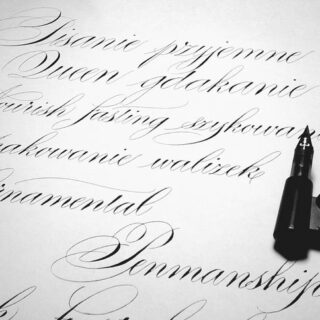 Pisanie przyjemne
Queen gdakanie
fasting
pakowanie walizek
Ornamental
Penmanship